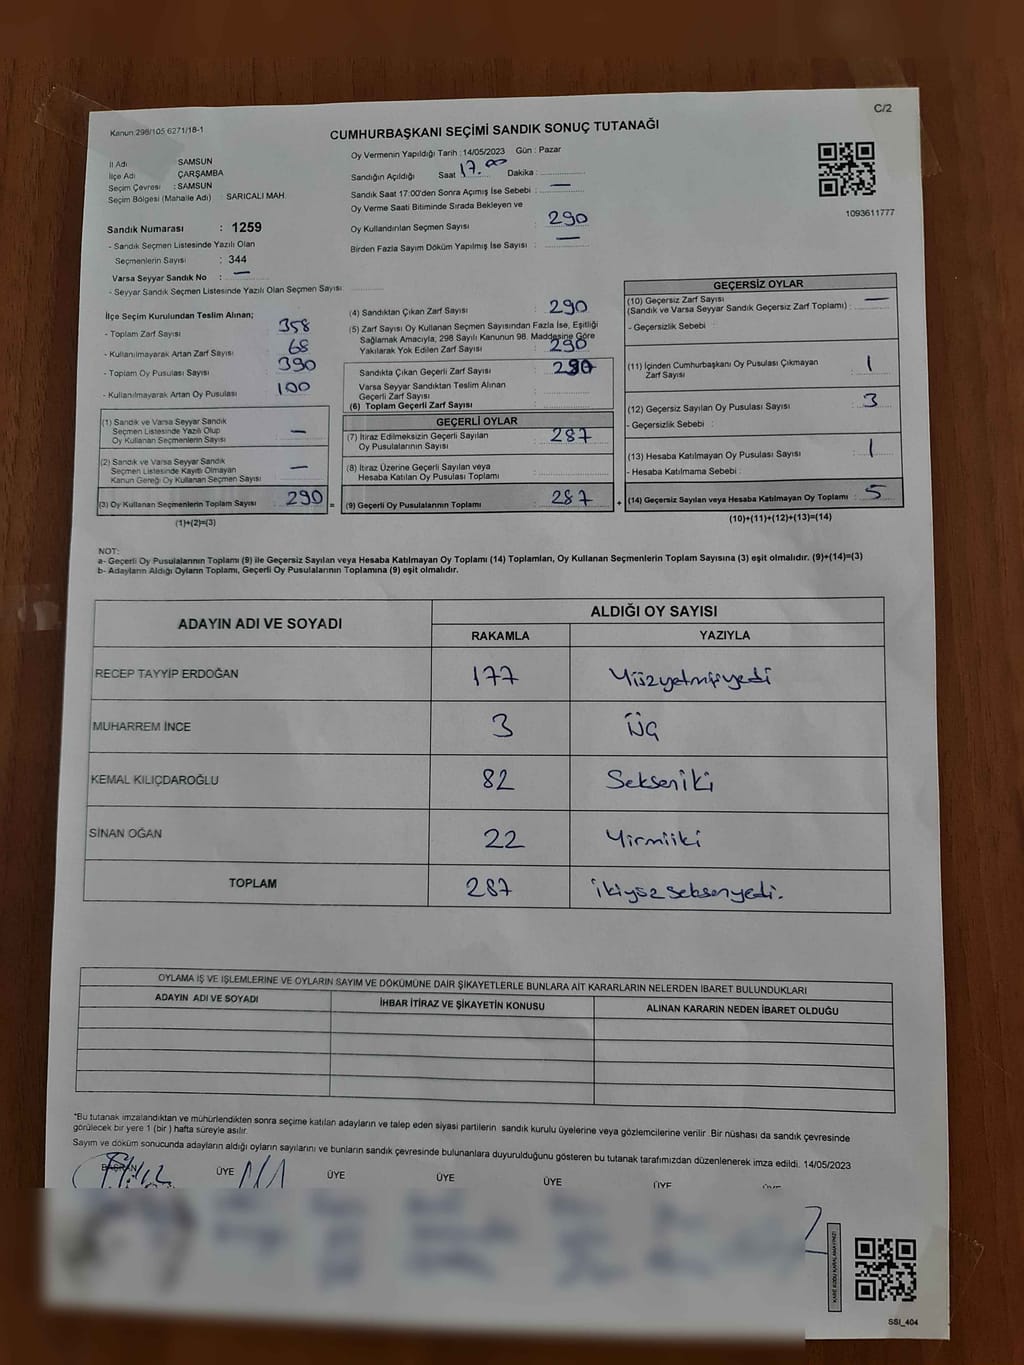 C/2
Kanun 298/105 6271/18-1
CUMHURBAŞKANI SEÇİMİ SANDIK SONUÇ TUTANAĞI
İl Adı SAMSUN
İlçe Adı ÇARŞAMBA
Seçim Çevresi : SAMSUN
Seçim Bölgesi (Mahalle Adı) : SARICALI MAH.
Sandık Numarası : 1259
- Sandık Seçmen Listesinde Yazılı Olan
Seçmenlerin Sayısı : 344
Varsa Seyyar Sandık No : —
- Seyyar Sandık Seçmen Listesinde Yazılı Olan Seçmen Sayısı:
Oy Vermenin Yapıldığı Tarih : 14/05/2023 Gün : Pazar
Sandığın Açıldığı Saat 17.00 Dakika :
Sandık Saat 17:00'den Sonra Açımış İse Sebebi : —
Oy Verme Saati Bitiminde Sırada Bekleyen ve
Oy Kullandırılan Seçmen Sayısı : 290
Birden Fazla Sayım Döküm Yapılmış İse Sayısı : —
1093611777
İlçe Seçim Kurulundan Teslim Alınan;
- Toplam Zarf Sayısı 358
- Kullanılmayarak Artan Zarf Sayısı 68
- Toplam Oy Pusulası Sayısı 390
- Kullanılmayarak Artan Oy Pusulası 100
(1) Sandık ve Varsa Seyyar Sandık
Seçmen Listesinde Yazılı Olup
Oy Kullanan Seçmenlerin Sayısı —
(2) Sandık ve Varsa Seyyar Sandık
Seçmen Listesinde Kayıtlı Olmayan
Kanun Gereği Oy Kullanan Seçmen Sayısı —
(3) Oy Kullanan Seçmenlerin Toplam Sayısı 290 =
(1)+(2)=(3)
(4) Sandıktan Çıkan Zarf Sayısı : 290
(5) Zarf Sayısı Oy Kullanan Seçmen Sayısından Fazla İse, Eşitliği
Sağlamak Amacıyla, 298 Sayılı Kanunun 98. Maddesine Göre
Yakılarak Yok Edilen Zarf Sayısı : 290
Sandıkta Çıkan Geçerli Zarf Sayısı : 290
Varsa Seyyar Sandıktan Teslim Alınan
Geçerli Zarf Sayısı :
(6) Toplam Geçerli Zarf Sayısı :
GEÇERLİ OYLAR
(7) İtiraz Edilmeksizin Geçerli Sayılan
Oy Pusulalarının Sayısı : 287
(8) İtiraz Üzerine Geçerli Sayılan veya
Hesaba Katılan Oy Pusulası Toplamı :
(9) Geçerli Oy Pusulalarının Toplamı : 287 +
GEÇERSİZ OYLAR
(10) Geçersiz Zarf Sayısı
(Sandık ve Varsa Seyyar Sandık Geçersiz Zarf Toplamı) : —
- Geçersizlik Sebebi :
(11) İçinden Cumhurbaşkanı Oy Pusulası Çıkmayan
Zarf Sayısı : 1
(12) Geçersiz Sayılan Oy Pusulası Sayısı : 3
- Geçersizlik Sebebi :
(13) Hesaba Katılmayan Oy Pusulası Sayısı : 1
- Hesaba Katılmama Sebebi :
(14) Geçersiz Sayılan veya Hesaba Katılmayan Oy Toplamı : 5
(10)+(11)+(12)+(13)=(14)
NOT:
a- Geçerli Oy Pusulalarının Toplamı (9) ile Geçersiz Sayılan veya Hesaba Katılmayan Oy Toplamı (14) Toplamları, Oy Kullanan Seçmenlerin Toplam Sayısına (3) eşit olmalıdır. (9)+(14)=(3)
b- Adayların Aldığı Oyların Toplamı, Geçerli Oy Pusulalarının Toplamına (9) eşit olmalıdır.
ADAYIN ADI VE SOYADI ALDIĞI OY SAYISI
RAKAMLA YAZIYLA
RECEP TAYYİP ERDOĞAN 177 Yüzyetmişyedi
MUHARREM İNCE 3 Üç
KEMAL KILIÇDAROĞLU 82 Sekseniki
SİNAN OĞAN 22 Yirmiiki
TOPLAM 287 ikiyüzseksenyedi.
OYLAMA İŞ VE İŞLEMLERİNE VE OYLARIN SAYIM VE DÖKÜMÜNE DAİR ŞİKAYETLERLE BUNLARA AİT KARARLARIN NELERDEN İBARET BULUNDUKLARI
ADAYIN ADI VE SOYADI İHBAR İTİRAZ VE ŞİKAYETİN KONUSU ALINAN KARARIN NEDEN İBARET OLDUĞU
*Bu tutanak imzalandıktan ve mühürlendikten sonra seçime katılan adayların ve talep eden siyasi partilerin sandık kurulu üyelerine veya gözlemcilerine verilir. Bir nüshası da sandık çevresinde
görülecek bir yere 1 (bir) hafta süreyle asılır.
Sayım ve döküm sonucunda adayların aldığı oyların sayılarını ve bunların sandık çevresinde bulunanlara duyurulduğunu gösteren bu tutanak tarafımızdan düzenlenerek imza edildi. 14/05/2023
BAŞKAN ÜYE ÜYE ÜYE ÜYE ÜYE
KARE KODU KARALAMAYINIZ!
SSI_404